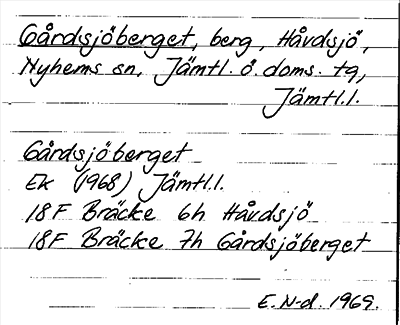 Gårdsjöberget, berg, Håvdsjö,
Nyhems sn, Jämtl. ö. doms. tg,
Jämtl.l.
Gårdsjöberget
Ek (1968) Jämtl.l.
18F Bräcke 6h Håvdsjö
18F Bräcke 7h Gårdsjöberget
E. N-d. 1969.